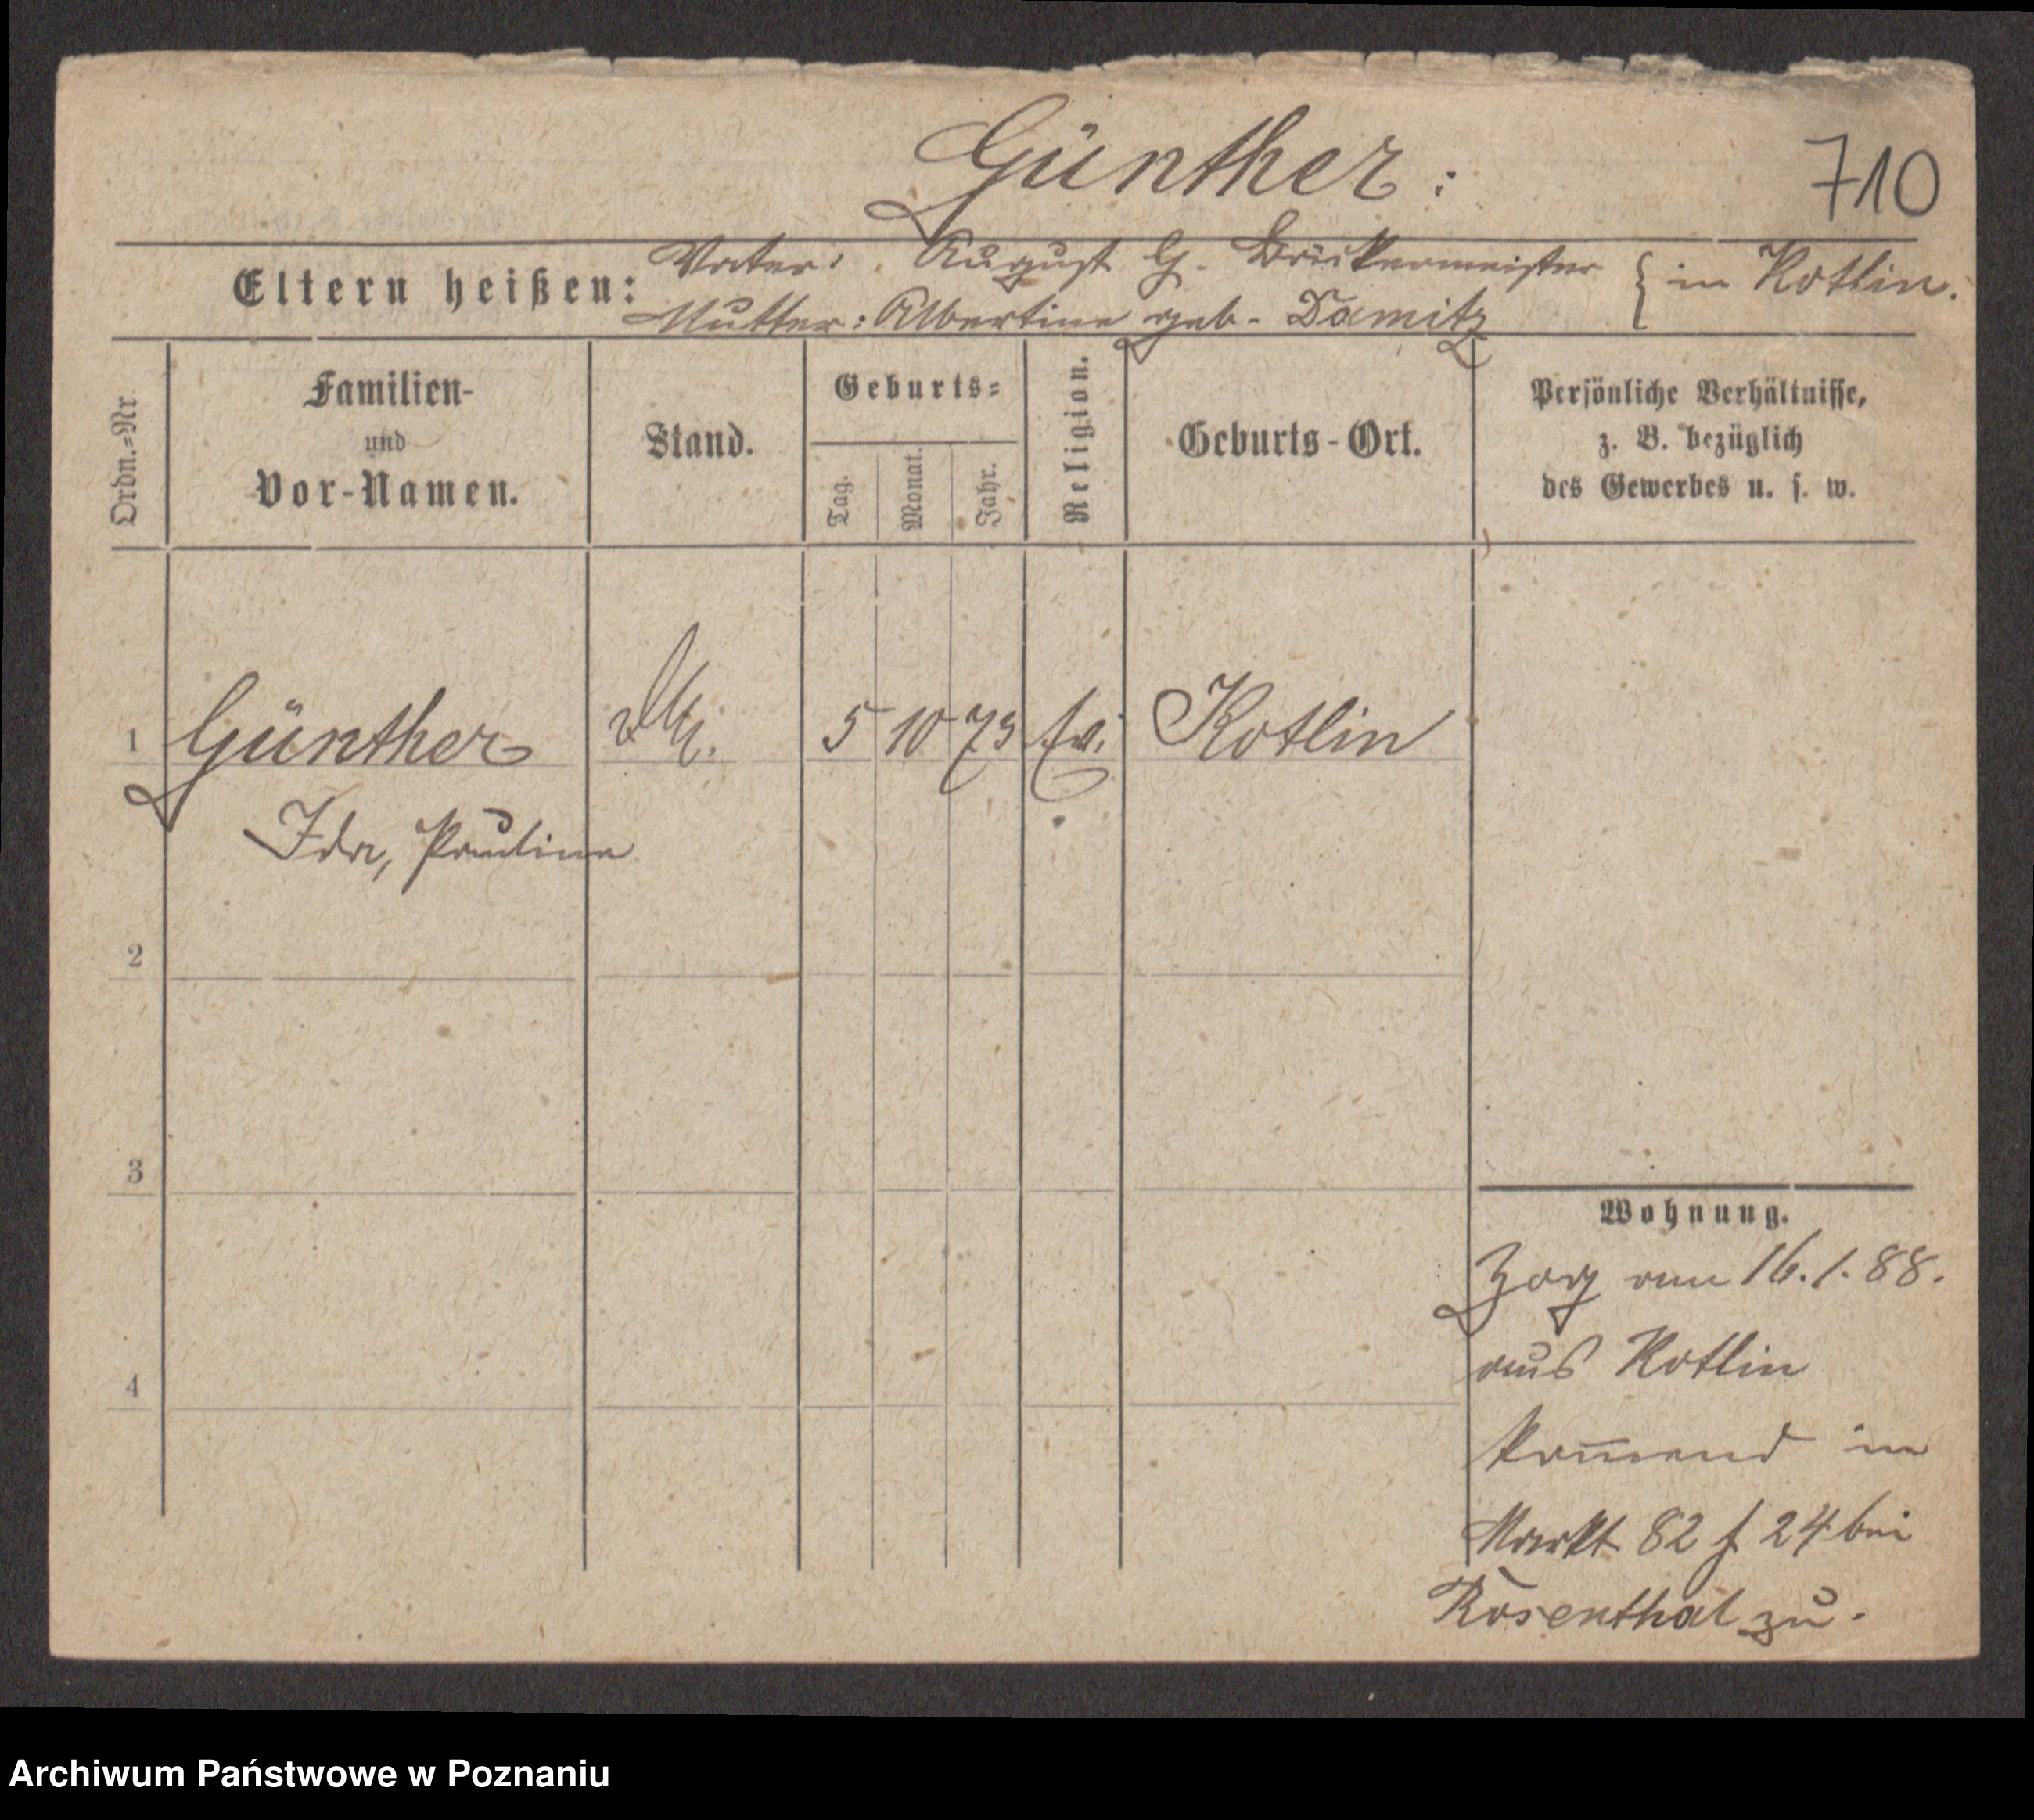 Günther:
710
Vater: August G. Brückenmeister } in Kotlin.
Eltern heißen:
Mutter: Albertine geb. Damitz
Ordn.=Nr.
Familien-
und
Vor-Namen.
Stand.
Geburts=
Tag.
Monat.
Jahr.
Religion.
Geburts-Ort.
Persönliche Verhältnisse,
z. B. bezüglich
des Gewerbes u. s. w.
1 Günther 5 10 73 ev. Kotlin
Ida, Pauline
2
3
4
Wohnung.
Zog am 16.1.88.
aus Kotlin
kom̅end im
Markt 82 f 24 bei
Rosenthal zu.
Archiwum Państwowe w Poznaniu